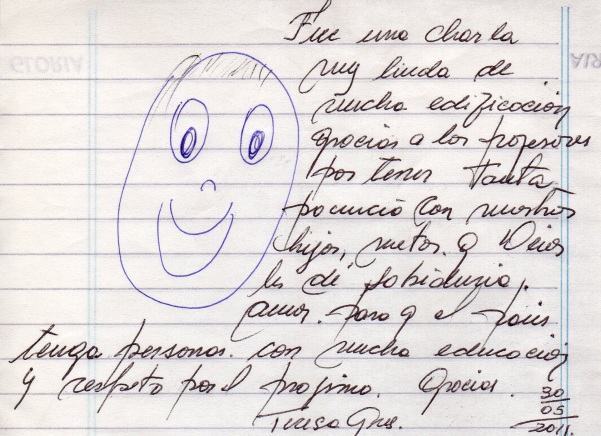 Fue una charla
muy linda de
mucha edificación
gracias a los profesores
por tener tanta
pacencia con nuestros
hijos, nietos. q Dios
les dé sabiduria,
amor. para q el país
tenga personas. con mucha educación
y respeto por el projimo. Gracias.
Teresa
30
05
2011.
GLORIA